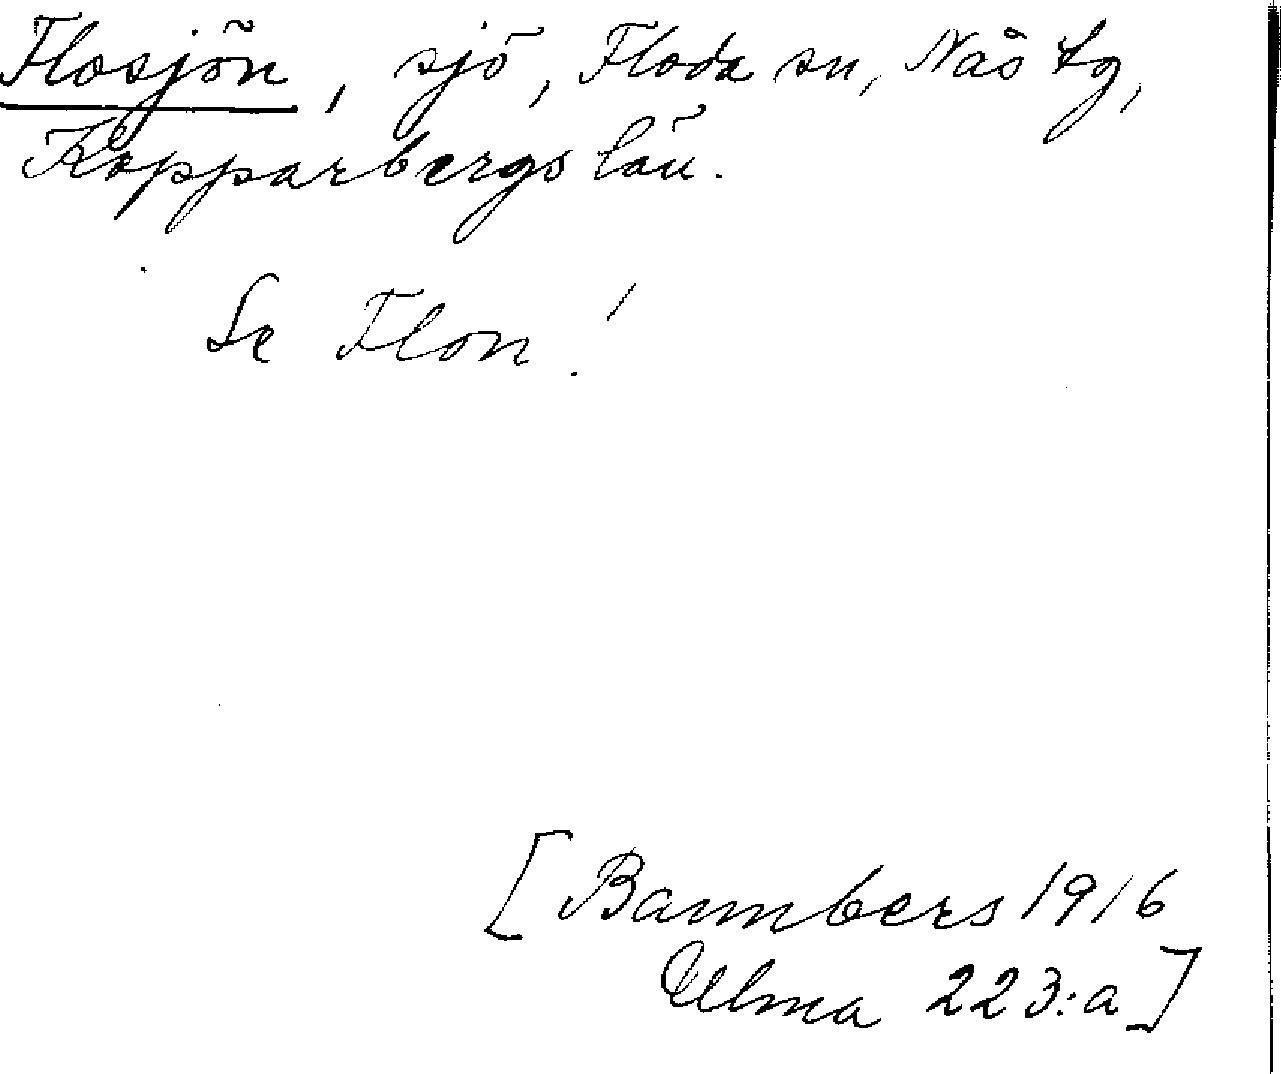 Flosjön, sjö, Floda sn, Nås tg,
Kopparbergs län.
Se Flon!
[Bannbers 1916
Ulma 223:a]